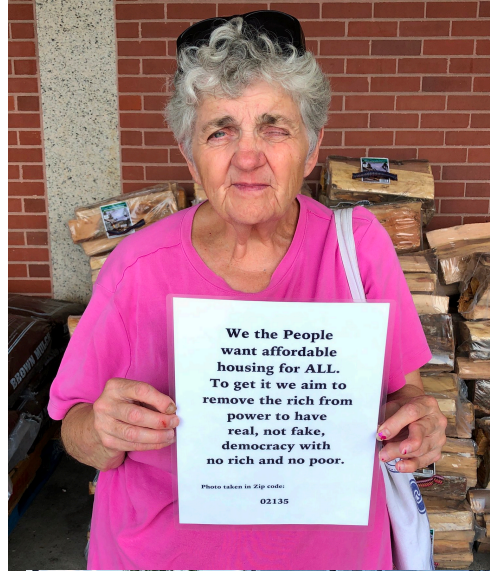 We the People
want affordable
housing for ALL.
To get it we aim to
remove the rich from
power to have
real, not fake,
democracy with
no rich and no poor.
Photo taken in Zip code:
02135
BROWN MULCH